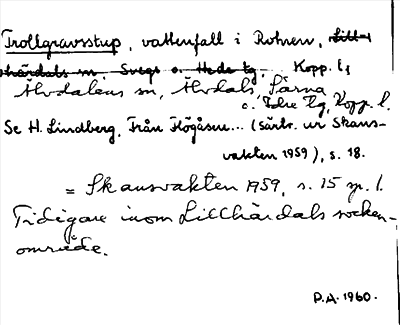 Trollgravsstup, vattenfall i Rotnen, Lill-
härdals sn, Svegs o. Hede tg, Kopp. l.,
Älvdalens sn, Älvdals, Särna
o. Idre tg, Kopp. l.
Se H. Lindberg, Från Högåsen... (särtr. ur Skans-
vakten 1959), s. 18.
= Skansvakten 1959, s. 15 sp. 1.
Tidigare inom Lillhärdals socken-
område.
P.A. 1960.